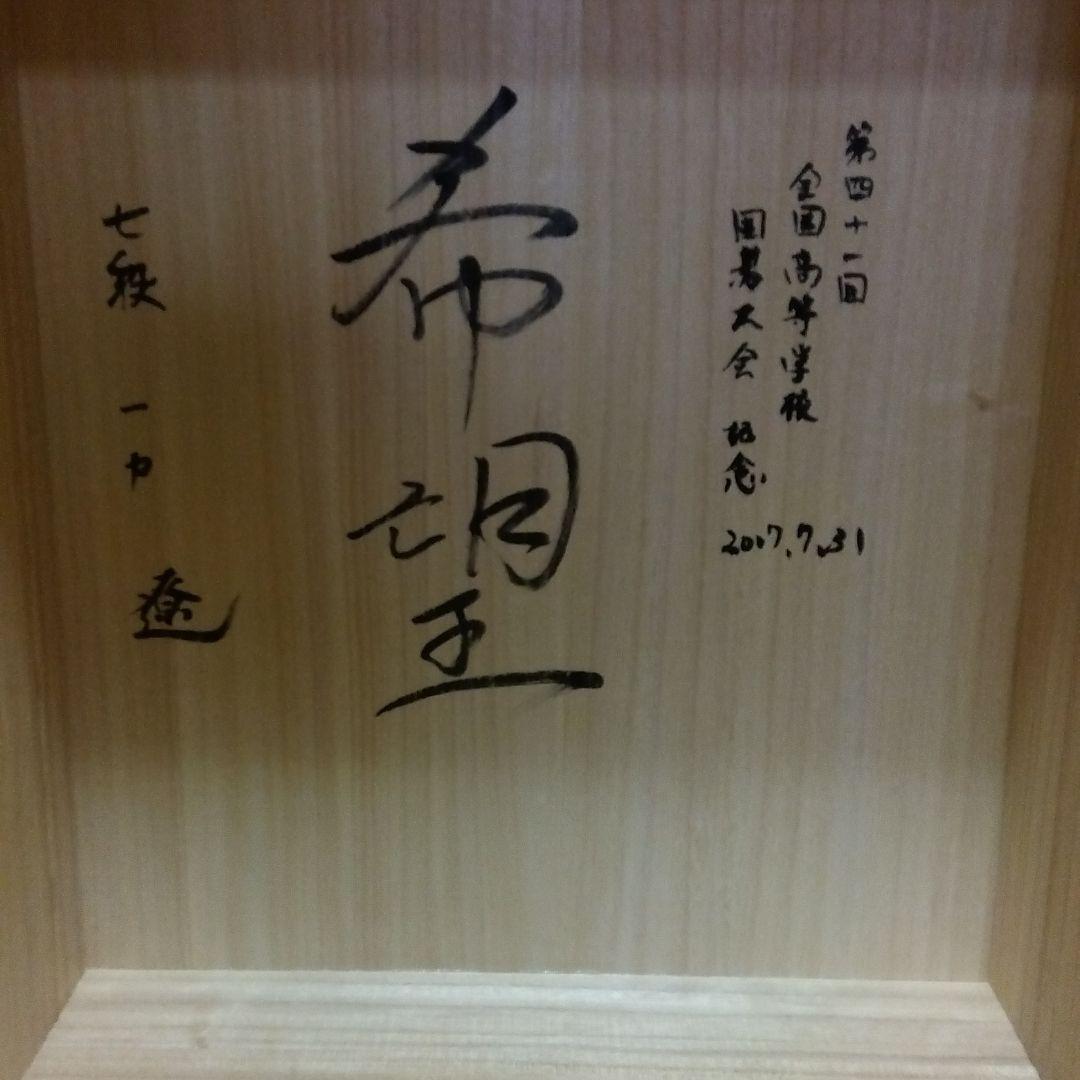 第四十一回
全国高等学校
囲碁大会 記念
2017.7.31
希望
七段 一力 遼